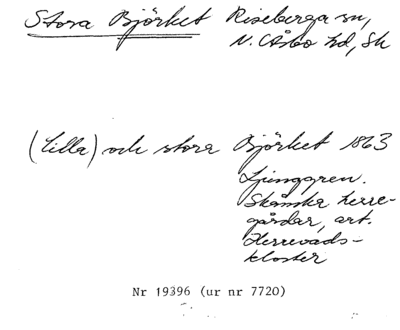 Stora Björket Riseberga sn,
N. Åsbo hd, Sk
(Lilla) och stora Björket 1863
Ljunggren.
Skånska herre-
gårdar, art.
Herrevads-
kloster
Nr 19396 (ur nr 7720)